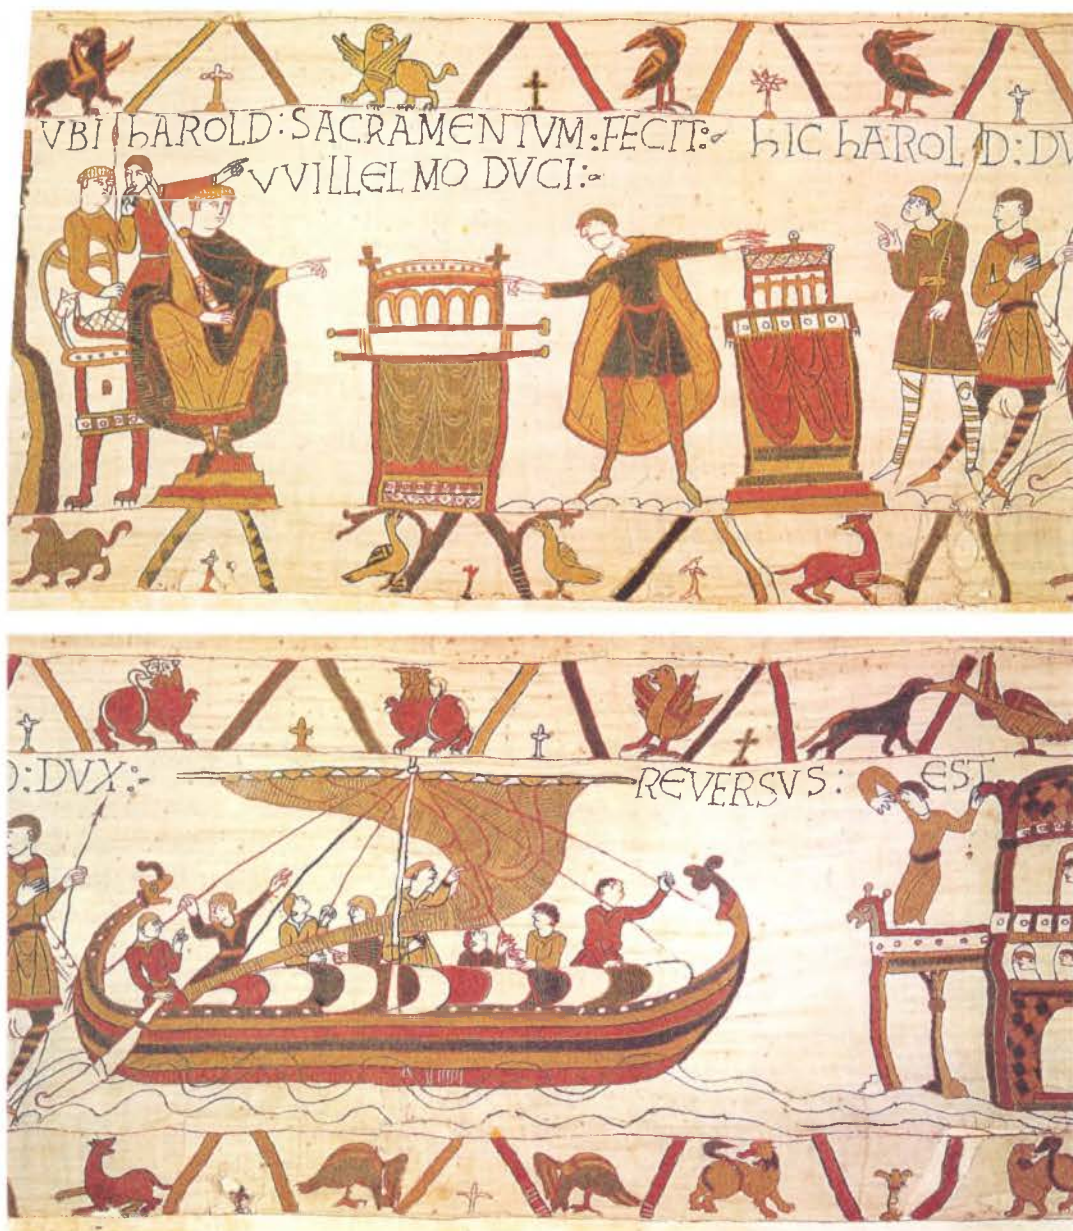 VBI hAROLD : SACRAMENTVM : FECIT :
VVILLELMO DVCI :
hIC hAROLD : DV
D : DVX :
REVERSVS : EST